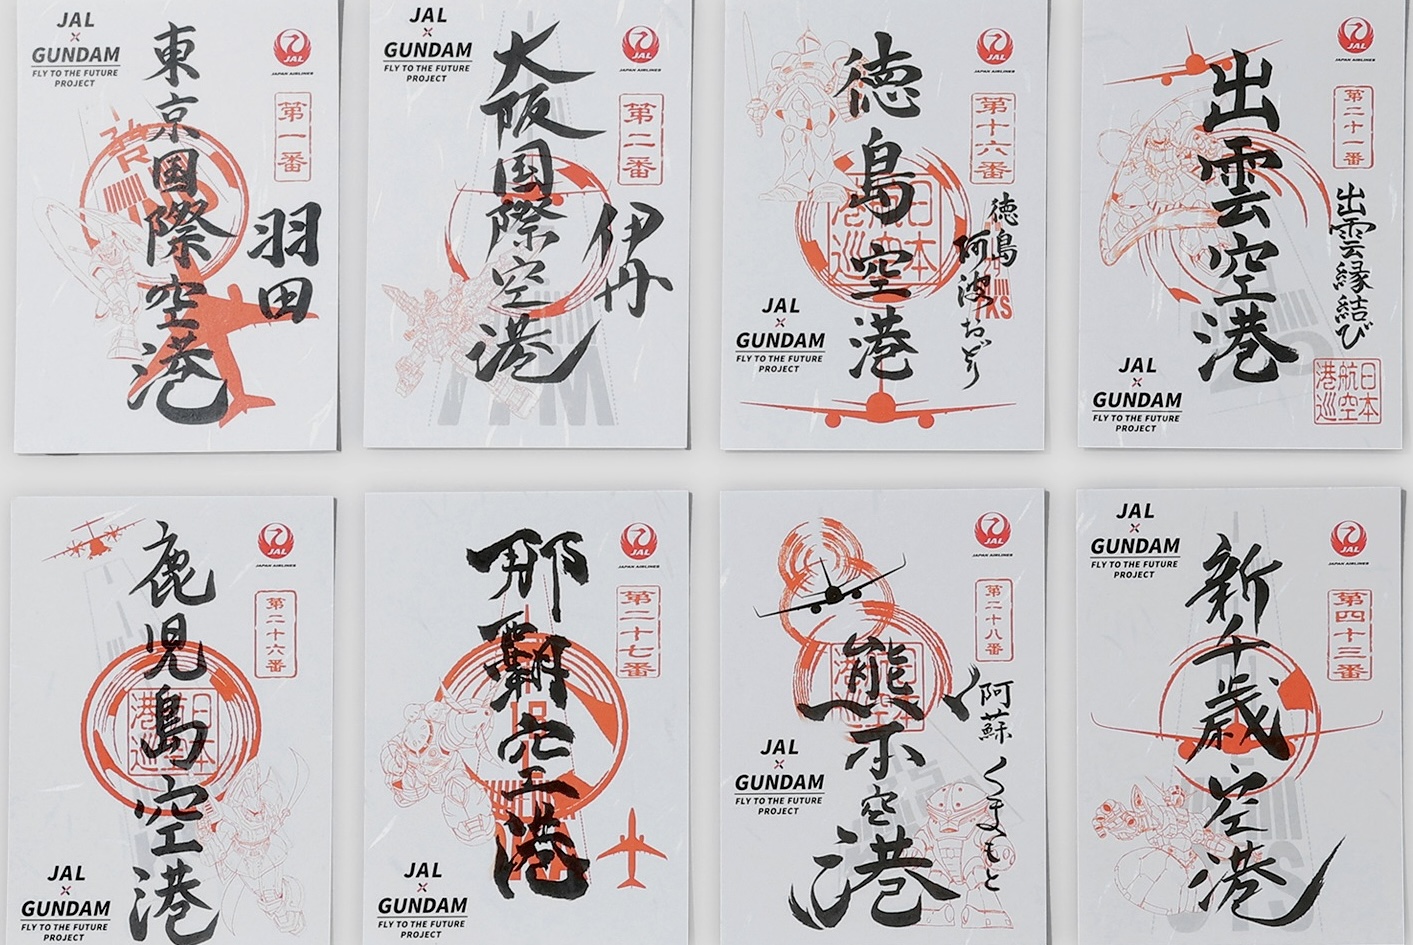 JAL
×
GUNDAM
FLY TO THE FUTURE
PROJECT
東京国際空港
羽田
JAL
JAPAN AIRLINES
第一番
JAL
×
GUNDAM
FLY TO THE FUTURE
PROJECT
大阪国際空港
伊丹
JAL
JAPAN AIRLINES
第二番
徳島空港
JAL
JAPAN AIRLINES
第十六番
徳島
阿波おどり
日本
航空
港巡
JAL
×
GUNDAM
FLY TO THE FUTURE
PROJECT
出雲空港
JAL
JAPAN AIRLINES
第二十一番
出雲縁結び
日本
航空
港巡
JAL
×
GUNDAM
FLY TO THE FUTURE
PROJECT
鹿児島空港
JAL
JAPAN AIRLINES
第二十六番
日本
航空
港巡
JAL
×
GUNDAM
FLY TO THE FUTURE
PROJECT
那覇空港
JAL
JAPAN AIRLINES
第二十七番
JAL
×
GUNDAM
FLY TO THE FUTURE
PROJECT
熊本空港
JAL
JAPAN AIRLINES
第二十八番
阿蘇
くまもと
JAL
×
GUNDAM
FLY TO THE FUTURE
PROJECT
JAL
×
GUNDAM
FLY TO THE FUTURE
PROJECT
新千歳空港
JAL
JAPAN AIRLINES
第四十三番